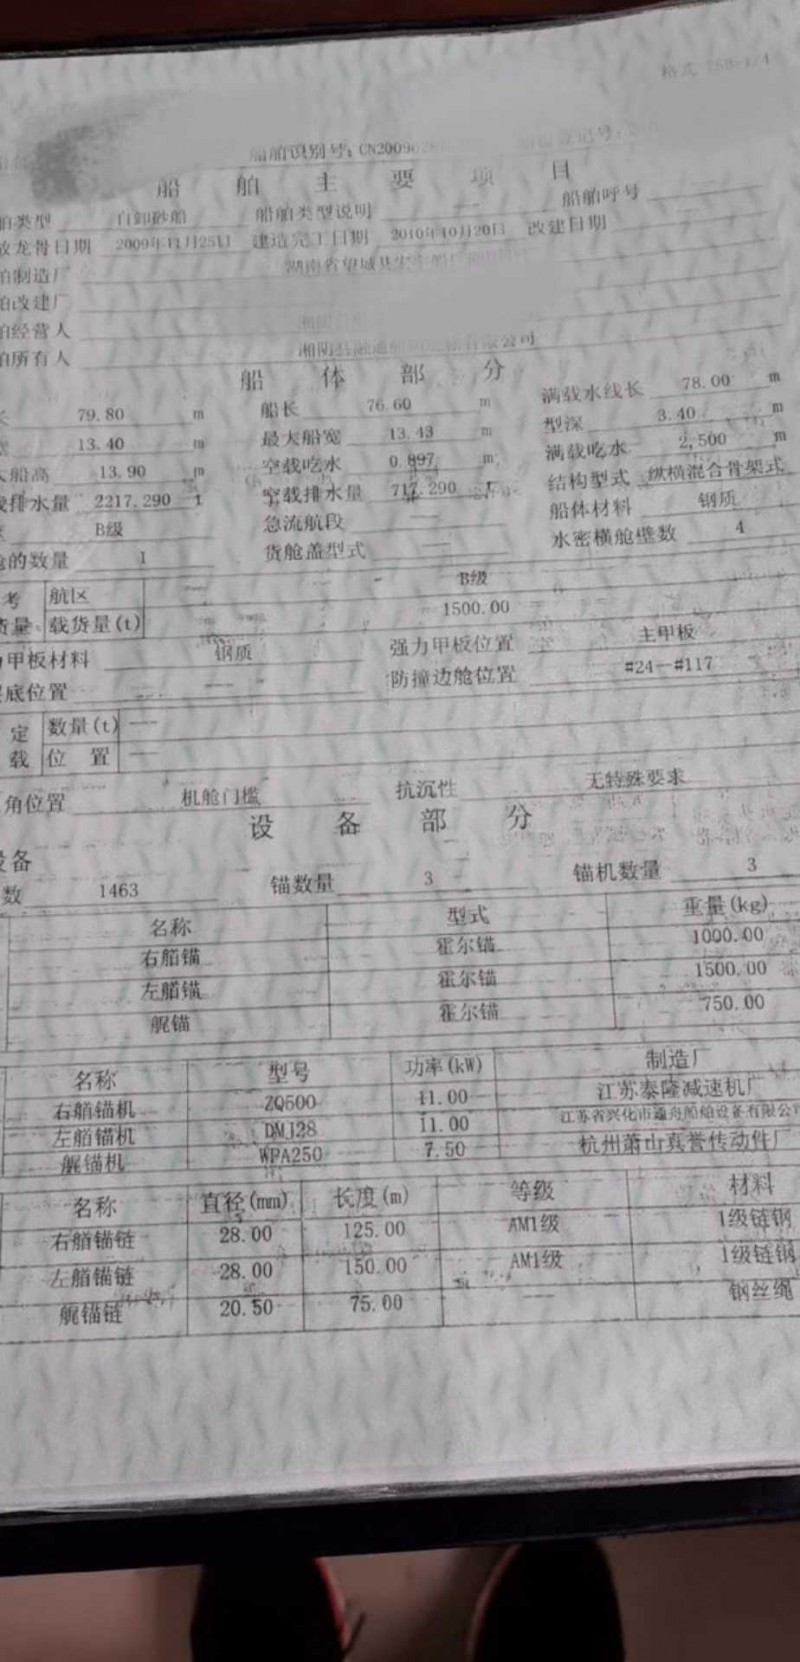 船舶识别号：CN20090
船舶主要项目
类型 自卸砂船 船舶类型说明 — 船舶呼号
龙骨日期 2009年11月25日 建造完工日期 2010年10月20日 改建日期
制造厂 湖南省望城县
改建厂
经营人 湘阴
所有人 湘阴县融通 有限公司
船体部分
79.80 m 船长 76.60 m 满载水线长 78.00 m
13.40 m 最大船宽 13.43 m 型深 3.40 m
船高 13.90 m 空载吃水 0.897 m 满载吃水 2,500 m
排水量 2217.290 t 空载排水量 717.290 t 结构型式 纵横混合骨架式
B级 急流航段 — 船体材料 钢质
的数量 1 货舱盖型式 — 水密横舱壁数 4
考 航区 B级
货量 载货量(t) 1500.00
甲板材料 钢质 强力甲板位置 主甲板
底位置 — 防撞边舱位置 #24—#117
定 数量(t) —
载 位置 —
角位置 机舱门槛 抗沉性 无特殊要求
设备部分
设备
数 1463 锚数量 3 锚机数量 3
名称 型式 重量(kg)
右艏锚 霍尔锚 1000.00
左艏锚 霍尔锚 1500.00
艉锚 霍尔锚 750.00
名称 型号 功率(kW) 制造厂
右艏锚机 ZQ500 11.00 江苏泰隆减速机厂
左艏锚机 DMJ28 11.00 江苏省兴化市 船舶设备有限公司
艉锚机 WPA250 7.50 杭州萧山真誉传动件厂
名称 直径(mm) 长度(m) 等级 材料
右艏锚链 28.00 125.00 AM1级 1级链钢
左艏锚链 28.00 150.00 AM1级 1级链钢
艉锚链 20.50 75.00 — 钢丝绳